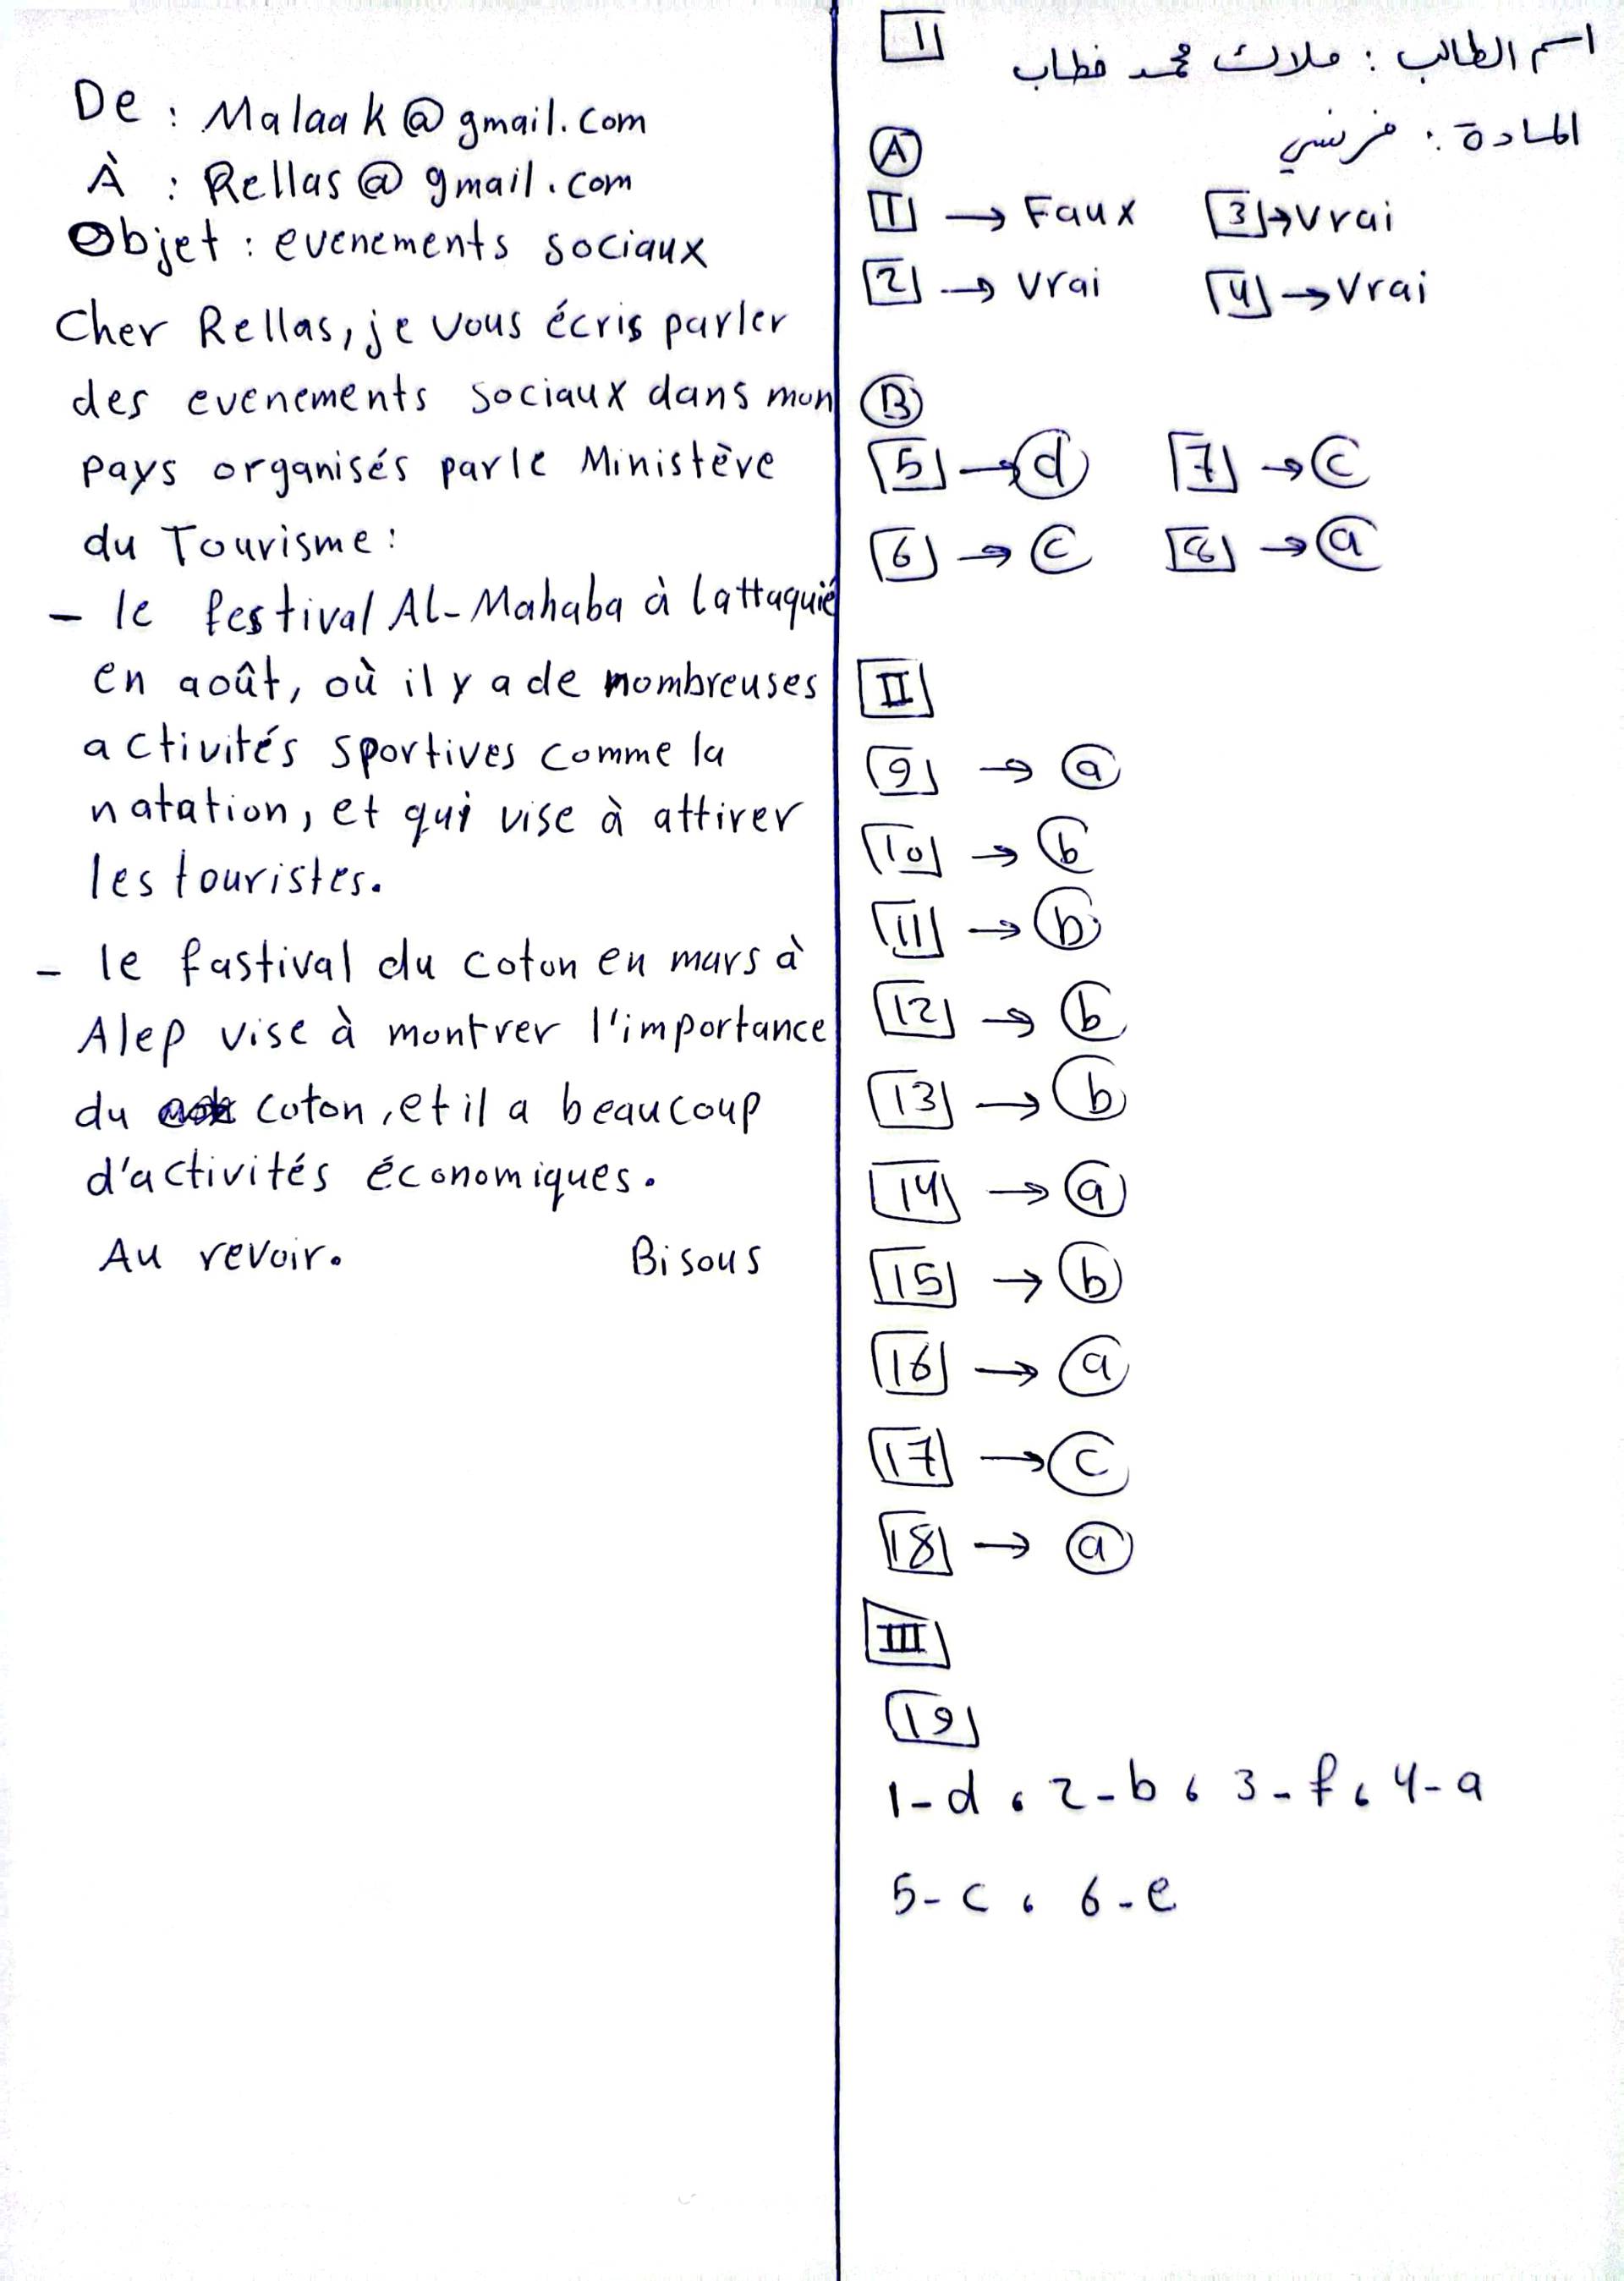 اسم الطالب : ملاك محمد خطاب
المادة : فرنسي
1
A
1 → Faux 3 → Vrai
2 → Vrai 4 → Vrai
B
5 → d 7 → c
6 → c 8 → a
II
9 → a
10 → b
11 → b
12 → b
13 → b
14 → a
15 → b
16 → a
17 → c
18 → a
III
19
1-d ، 2-b ، 3-f ، 4-a
5-c ، 6-e
De : Malaak@gmail.com
À : Rellas@gmail.com
Objet : evenements sociaux
Cher Rellas, je vous écris parler
des evenements sociaux dans mon
pays organisés par le Ministève
du Tourisme :
- le festival Al-Mahaba à lattaquié
en août, où il y a de nombreuses
activités sportives comme la
natation, et qui vise à attirer
les touristes.
- le fastival du coton en mars à
Alep vise à montrer l'importance
du coton, et il a beaucoup
d'activités économiques.
Au revoir. Bisous